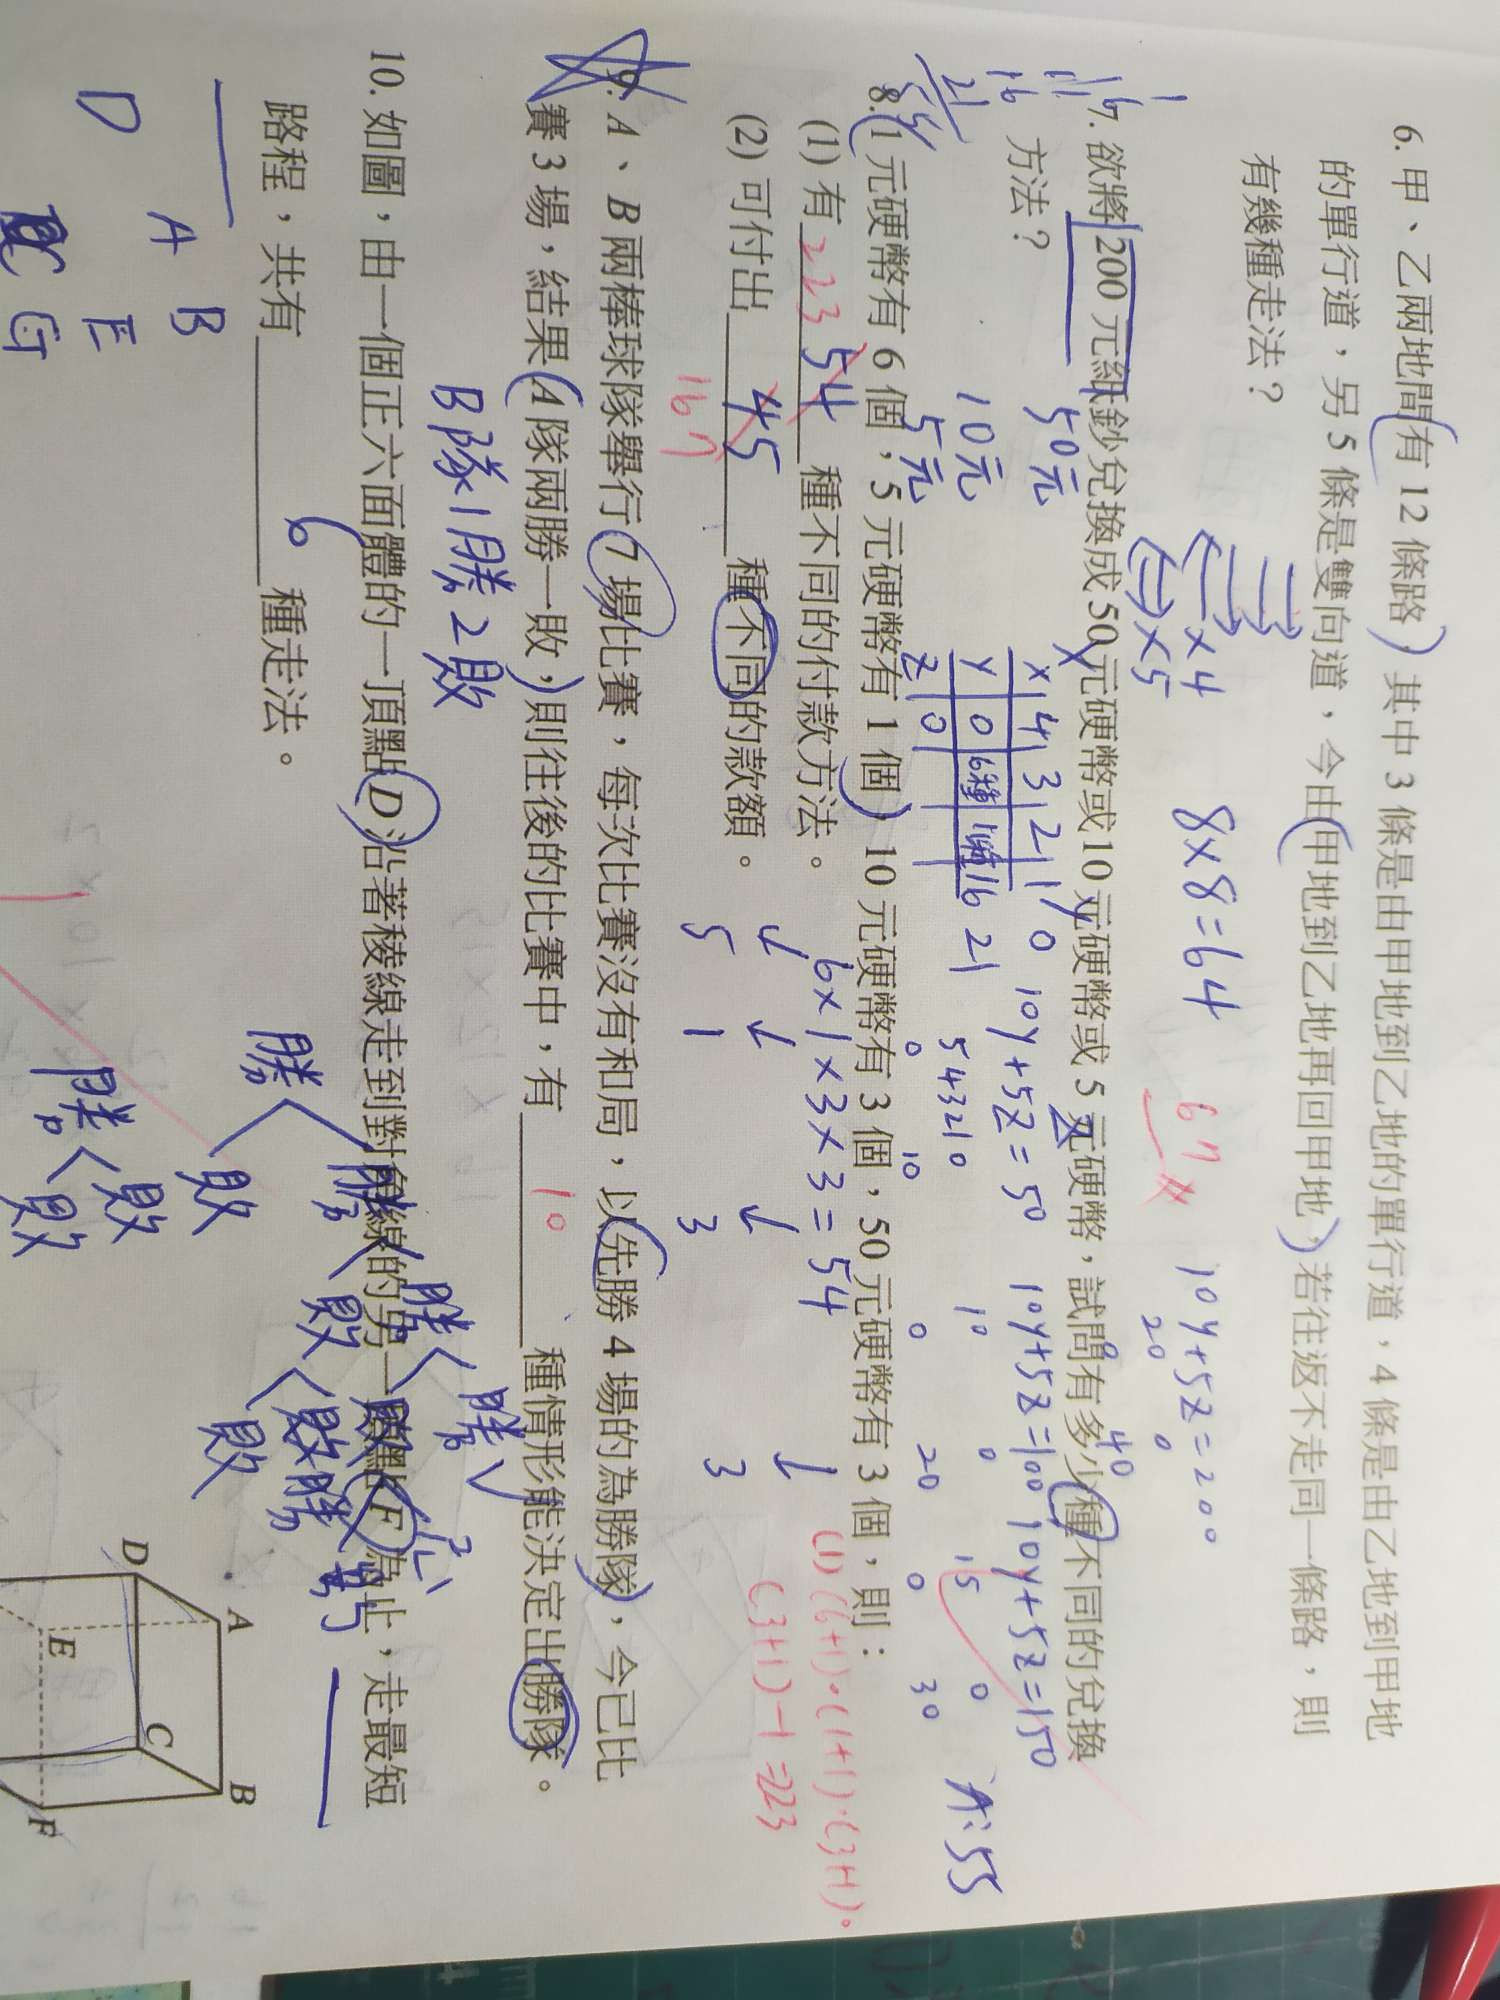 6. 甲、乙兩地間有 12 條路，其中 3 條是由甲地到乙地的單行道，4 條是由乙地到甲地
的單行道，另 5 條是雙向道，今由甲地到乙地再回甲地，若往返不走同一條路，則
有幾種走法？
×4
×5
8×8=64
67
10y+5z=200
20
0
0
40
7. 欲將 200 元紙鈔兌換成 50 元硬幣或 10 元硬幣或 5 元硬幣，試問有多少種不同的兌換
方法？
1
6
11
16
21
50元
10元
5元
x 4 3 2 1 0
y 0 6種 11種 16 21
z 0
10y+5z=50
5 4 3 2 1 0
0 10
10y+5z=100
10 0
0 20
10y+5z=150
15 0
0 30
A:55
8. 1 元硬幣有 6 個，5 元硬幣有 1 個，10 元硬幣有 3 個，50 元硬幣有 3 個，則：
(1) 有 223 54 種不同的付款方法。
6×1×3×3=54
(1) (6+1)·(1+1)·(3+1)·
(3+1)-1=223
(2) 可付出 45 種不同的款額。
167
5 1 3 3
9. A、B 兩棒球隊舉行 7 場比賽，每次比賽沒有和局，以先勝 4 場的為勝隊，今已比
賽 3 場，結果 A 隊兩勝一敗，則往後的比賽中，有 10 種情形能決定出勝隊。
B隊1勝2敗
勝 勝 勝 勝
敗 敗 敗
勝 敗 敗 勝
敗 敗
10. 如圖，由一個正六面體的一頂點 D 沿著稜線走到對角線的另一頂點 F 為止，走最短
路程，共有 6 種走法。
A B
D E
C G
A
B
C
D
E
F